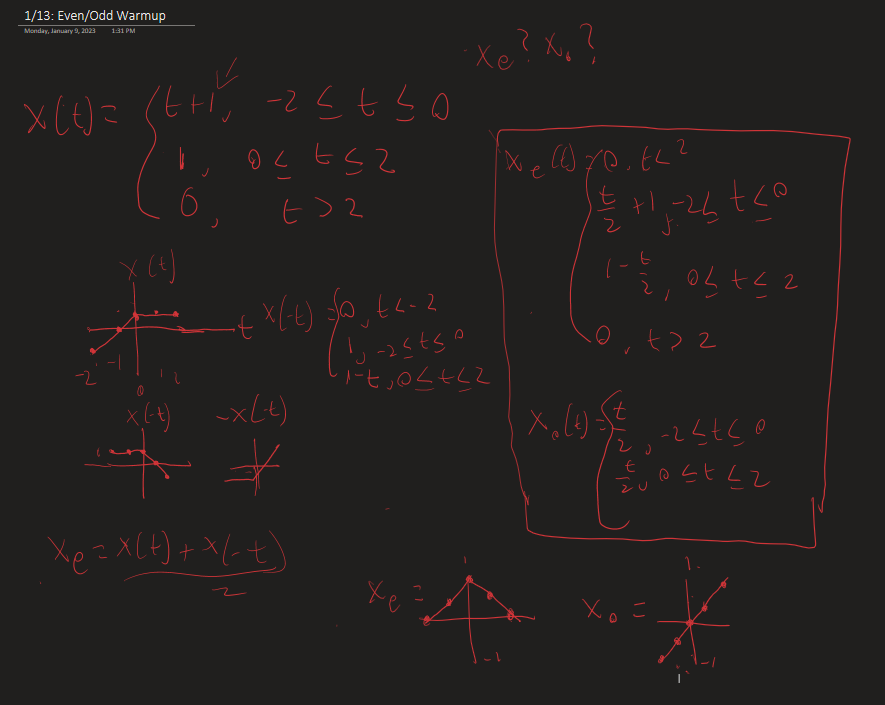 1/13: Even/Odd Warmup
Monday, January 9, 2023 1:31 PM
x_e? x_o?
x(t) = { t+1, -2 ≤ t ≤ 0
1, 0 ≤ t ≤ 2
0, t > 2
x(t)
t
-2 -1 0 1 2
x(-t) = { 0, t < -2
1, -2 ≤ t ≤ 0
1-t, 0 ≤ t ≤ 2
x(-t)
1
-x(-t)
x_e = x(t) + x(-t) / 2
x_e(t) = { 0, t < 2
t/2 + 1, -2 ≤ t ≤ 0
1 - t/2, 0 ≤ t ≤ 2
0, t > 2
x_o(t) = { t/2, -2 ≤ t ≤ 0
t/2, 0 ≤ t ≤ 2
x_e =
1
-1
x_o =
1
-1